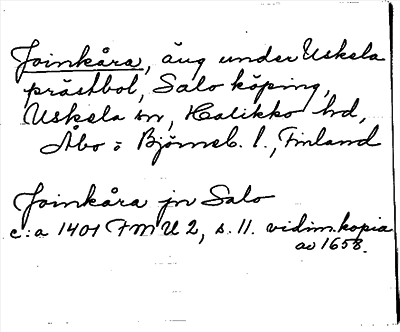 Joinkåra, äng under Uskela
prästbol, Salo köping,
Uskela sn, Halikko hd,
Åbo = Björneb. l., Finland
Joinkåra jn Salo
c:a 1401 FMU 2, s. 11. vidim. kopia
av 1658.